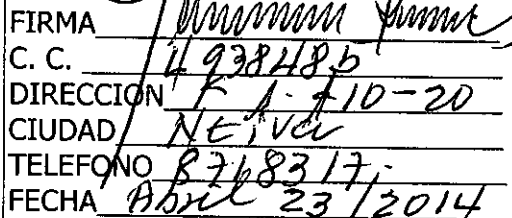 FIRMA
C. C. 4938485
DIRECCIÓN
CIUDAD Neiva
TELEFONO 8768317
FECHA Abril 23/2014